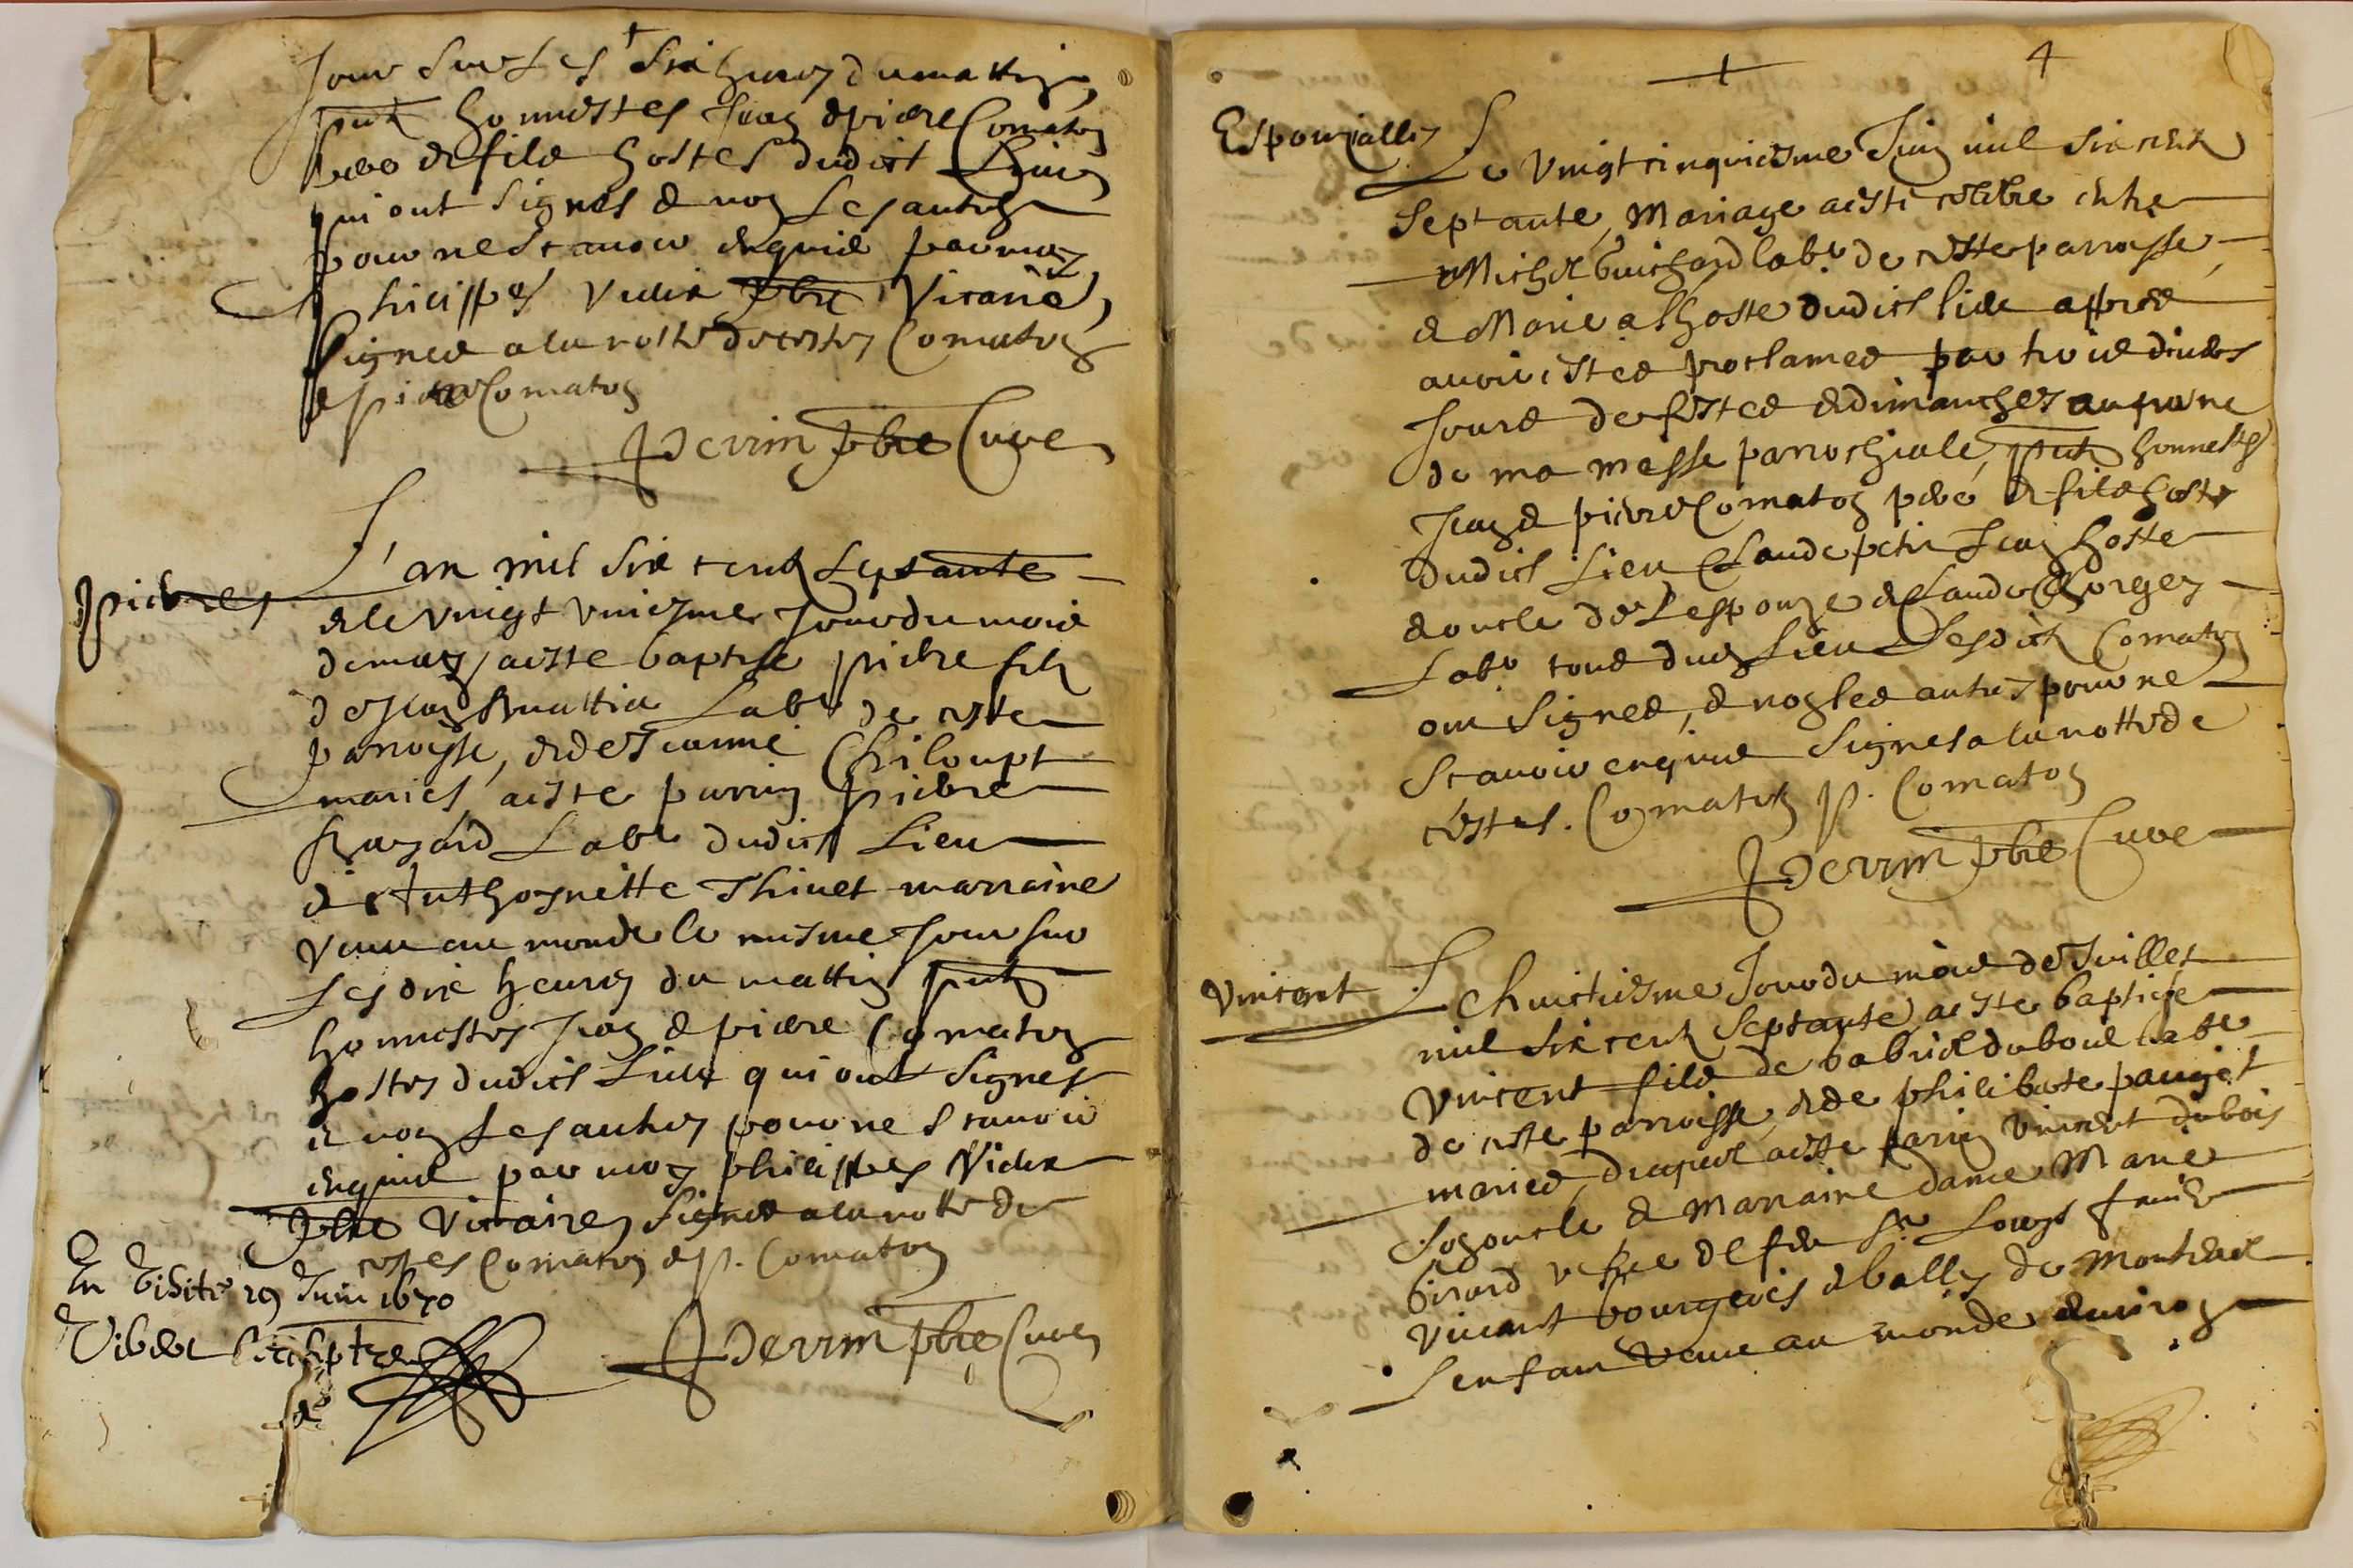 Jour sur Les six heures du mattin,
pntz honnestes Jean & pierre Comaton
pere & filz hostes dudict Lieu
qui ont signes & non Les autres
pour ne scavoir enquis par moy
philippes Vieux pbre Vicaire,
Signes a la notte de cestes Comaton
& pierre Comaton
Perrin pbre Cure
pierre
L'an mil six centz septante
& le vingt uniesme Jour du mois
de may, a este baptise pierre filz
de Jean Labr de ceste
parroisse, & de Jeanne Chiloupt
maries a este parrin pierre
Labr dudict Lieu
& Anthoynette Thinet marraine
venu au monde le mesme Jour sur
Les dix heures du mattin pntz
honnestes Jean & pierre Comaton
hostes dudict Lieu qui ont signes
& non Les autres pour ne scavoir
enquis par moy philippes Vieux
pbre Vicaire, Signes a la notte de
cestes Comaton & p. Comaton
En Visite 29 Juin 1670
Perrin pbre Cure
4
Espouzailles
Le vingt cinquiesme Juin mil six centz
septante, Mariage a este celebre entre
Michel Guichard labr de ceste parroisse,
& Marie alhoste dudict lieu apres
avoir estes proclames par trois divers
Jours de festes & dimanches au prosne
de ma messe parrochiale, pntz honnestes
Jean & pierre Comaton pere & filz hostes
dudict Lieu Claude petit Jean hoste
& oncle de L'espouze & Claude Georges
Labr tous dud Lieu Lesdictz Comaton
ont signes, & non les autres pour ne
scavoir enquis Signes a la notte de
cestes. Comaton p. Comaton
Perrin pbre Cure
Vincent
Le huictiesme Jour du mois de Juillet
mil six centz septante a este baptise
Vincent filz de Gabriel dubois labr
de ceste parroisse, & de philiberte pauget
maries, duquel a este parrin Vincent dubois
son oncle & marraine dame Marie
Girard vefve de feu Sr Louys
vivant bourgeois & bally de
L'enfant venu au monde environ